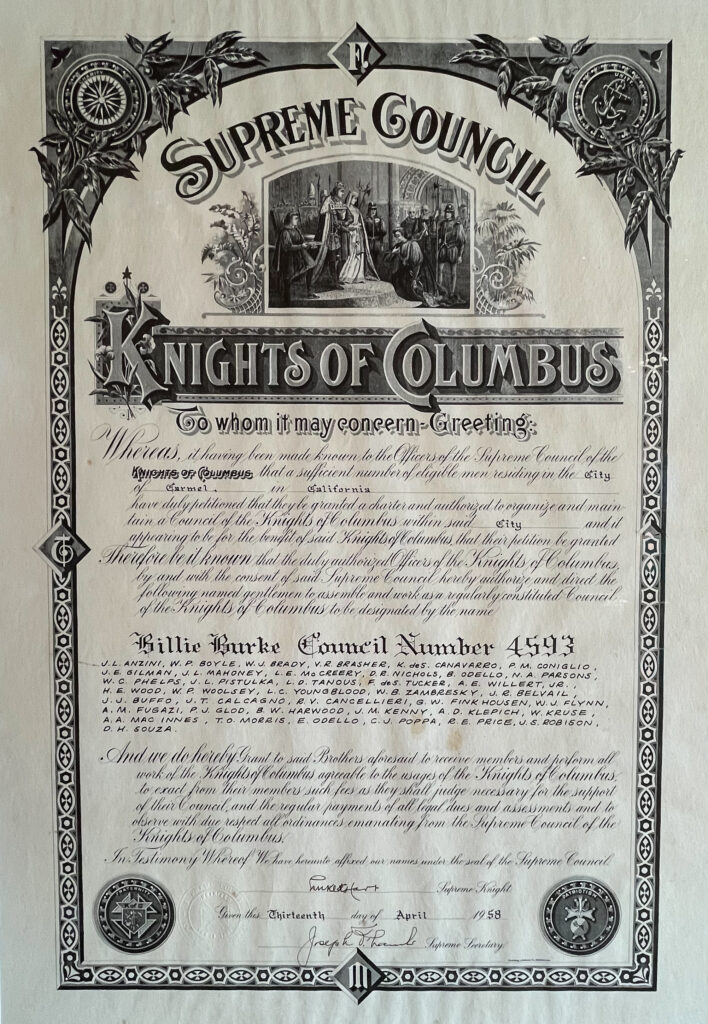 F.
SUPREME COUNCIL
UNITY
KNIGHTS OF COLUMBUS
To whom it may concern-Greeting:
Whereas, it having been made known to the Officers of the Supreme Council of the
KNIGHTS OF COLUMBUS that a sufficient number of eligible men residing in the City
of Carmel, in California
have duly petitioned that they be granted a charter and authorized to organize and main
tain a Council of the Knights of Columbus within said City and it
appearing to be for the benefit of said Knights of Columbus that their petition be granted
Therefore be it known that the duly authorized Officers of the Knights of Columbus,
by and with the consent of said Supreme Council hereby authorize and direct the
following named gentlemen to assemble and work as a regularly constituted Council
of the Knights of Columbus to be designated by the name
Billie Burke Council Number 4593
J.L. ANZINI, W.P. BOYLE, W.J. BRADY, V.R. BRASHER, K. deS. CANAVARRO, P.M. CONIGLIO,
J.E. GILMAN, J.L. MAHONEY, L.E. McCREERY, D.R. NICHOLS, B. ODELLO, N.A. PARSONS,
W.C. PHELPS, J.L. PISTULKA, L.D. TANOUS, F. deS. TUCKER, A.E. WILLERT, JR.,
H.E. WOOD, W.P. WOOLSEY, L.C. YOUNGBLOOD, W.B. ZAMBRESKY, J.R. BELVAIL,
J.J. BUFFO, J.T. CALCAGNO, R.V. CANCELLIERI, G.W. FINKHOUSEN, W.J. FLYNN,
A.M. FUGAZI, P.J. GLOD, B.W. HARWOOD, J.M. KENNY, A.D. KLEPICH, W. KRUSE,
A.A. MAC INNES, T.O. MORRIS, E. ODELLO, C.J. POPPA, R.E. PRICE, J.S. ROBISON,
D.H. SOUZA.
And we do hereby Grant to said Brothers aforesaid to receive members and perform all
work of the Knights of Columbus agreable to the usages of the Knights of Columbus,
to exact from their members such fees as they shall judge necessary for the support
of their Council, and the regular payments of all legal dues and assessments and to
observe with due respect all ordinances emanating from the Supreme Council of the
Knights of Columbus.
In Testimony Whereof We have hereunto affixed our names under the seal of the Supreme Council
Luke E Hart Supreme Knight
Given this Thirteenth day of April 1958
Joseph F. Lamb Supreme Secretary
PATRIOTISM